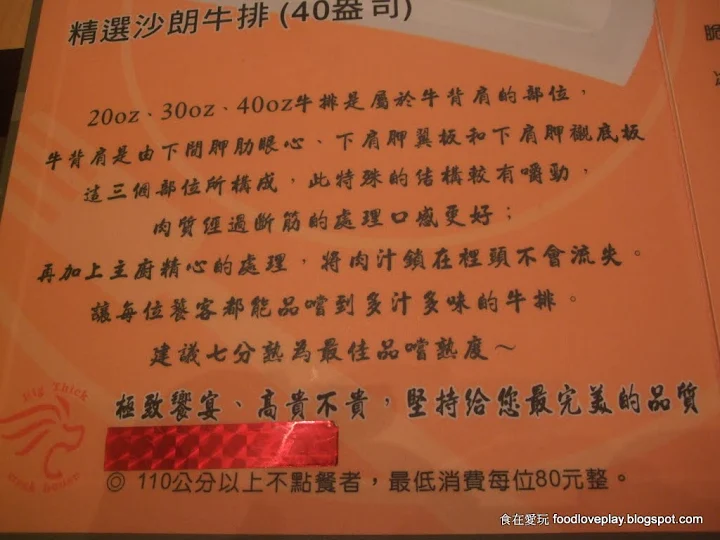 精選沙朗牛排(40盎司)
20oz、30oz、40oz牛排是屬於牛背肩的部位，
牛背肩是由下間胛肋眼心、下肩胛翼板和下肩胛襯底板
這三個部位所構成，此特殊的結構較有嚼勁，
肉質經過斷筋的處理口感更好；
再加上主廚精心的處理，將肉汁鎖在裡頭不會流失。
讓每位饕客都能品嚐到多汁多味的牛排。
建議七分熟為最佳品嚐熟度～
Big Thick
極致饗宴、高貴不貴，堅持給您最完美的品質
◎ 110公分以上不點餐者，最低消費每位80元整。
食在愛玩 foodloveplay.blogspot.com